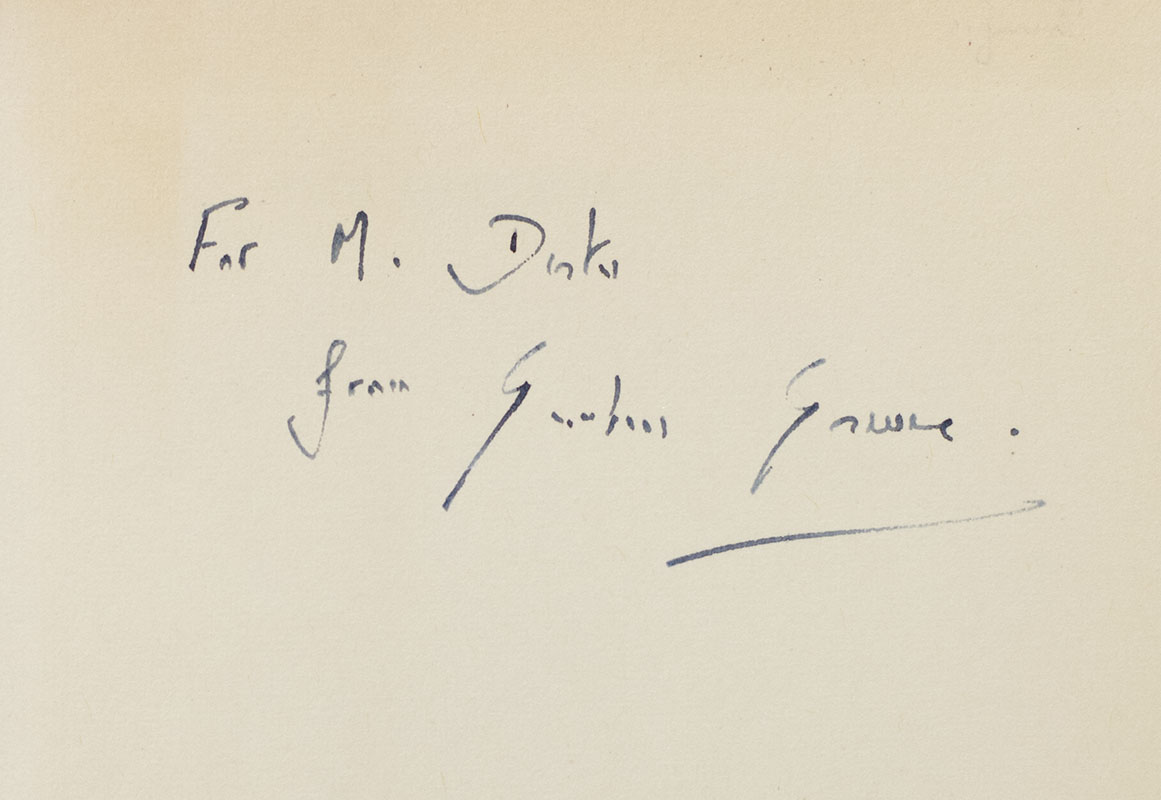 For M.
from Graham Greene.